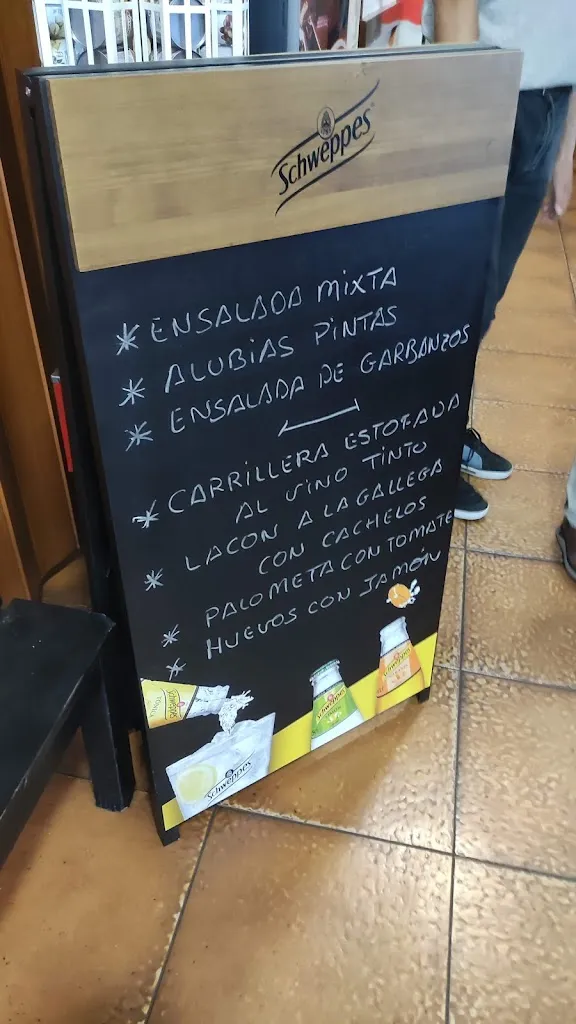 Schweppes
* ENSALADA MIXTA
* ALUBIAS PINTAS
* ENSALADA DE GARBANZOS
* CARRILLERA ESTOFADA
AL VINO TINTO
* LACON A LA GALLEGA
CON CACHELOS
* PALOMETA CON TOMATE
* HUEVOS CON JAMÓN
Schweppes
Schweppes
Schweppes
Schweppes